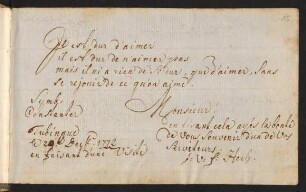 Il est dur d'aimer
il est dur de n'aimer pas
mais il n'i a rien de si dur, que d'aimer, sans
se rejouir de ce qu'on aime.
Symb.
Constanter
Tubingue
en faisant d'une Visite
Monsieur
en lisant cela aÿés la bonté
de vous souvenir d'un de vos
Serviteurs